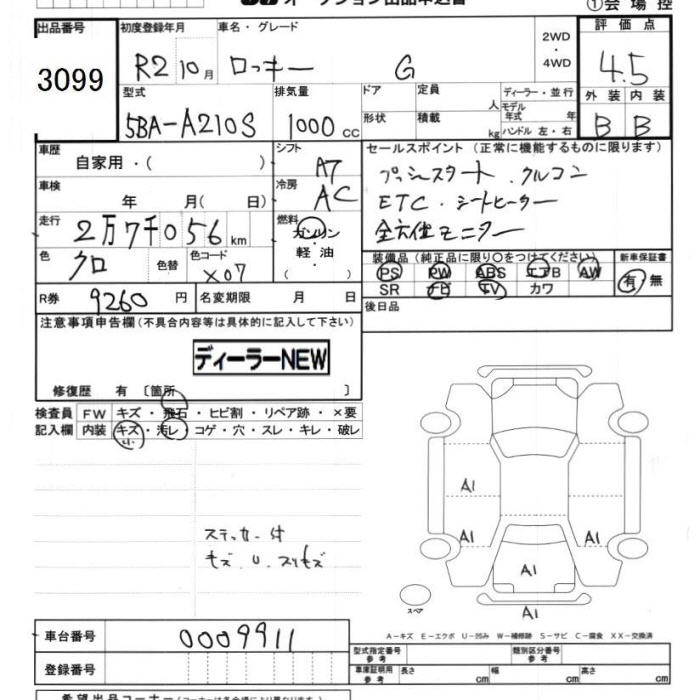 オークション出品申込書
①会場控
出品番号 3099
初度登録年月 R2 10月
車名・グレード ロッキー G
2WD・4WD
評価点 4.5
外装 B 内装 B
型式 5BA-A210S
排気量 1000 cc
ドア 形状
定員 人 積載 kg
ディーラー・並行
モデル年式 年
ハンドル 左・右
車歴 自家用・( )
シフト A7
車検 年 月(日)
冷房 AC
走行 2万7千056 km
燃料 ガソリン・軽油
色 クロ 色替 色コード X07
R券 9260 円 名変期限 月 日
セールスポイント(正常に機能するものに限ります)
プッシュスタート . クルコン
ETC . シートヒーター
全方位モニター
装備品(純正品に限り〇をつけてください) 新車保証書
PS PW ABS エアB AW 有・無
SR ナビ TV カワ
後日品
注意事項申告欄(不具合内容等は具体的に記入して下さい)
ディーラーNEW
修復歴 有 〔箇所 〕
検査員 FW キズ・飛石・ヒビ割・リペア跡・×要
記入欄 内装 キズ・汚レ・コゲ・穴・スレ・キレ・破レ
小
ステッカー 付
キズ . U . スリキズ
A1
A1 A1
A1
A1
スペア
A-キズ E-エクボ U-凹み W-補修跡 S-サビ C-腐食 XX-交換済
車台番号 0009911
登録番号
型式指定番号 参考 類別区分番号 参考
車庫証明用 参考 長さ cm 幅 cm 高さ cm
希望出品コーナー